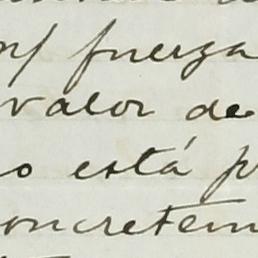 n/ fuerza
valor de
o está p
oncretem